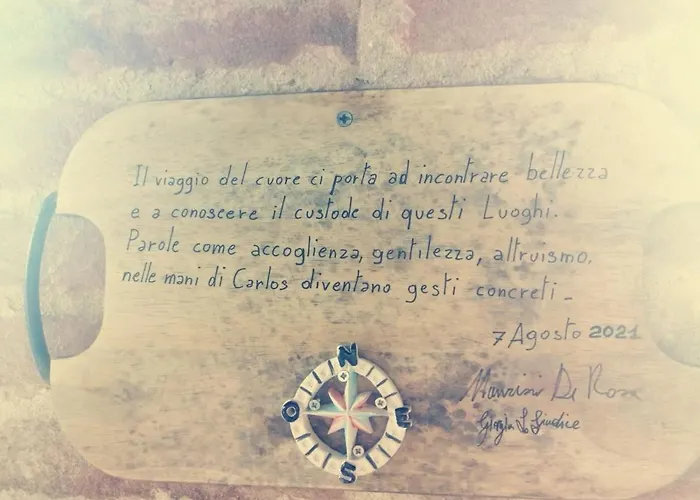 Il viaggio del cuore ci porta ad incontrare bellezza
e a conoscere il custode di questi Luoghi.
Parole come accoglienza, gentilezza, altruismo,
nelle mani di Carlos diventano gesti concreti_
7 Agosto 2021
De Rosa
Lo Giudice
N
O E
S